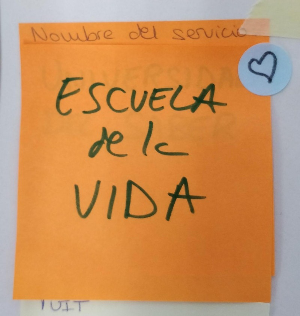 Nombre del servicio
ESCUELA
de la
VIDA